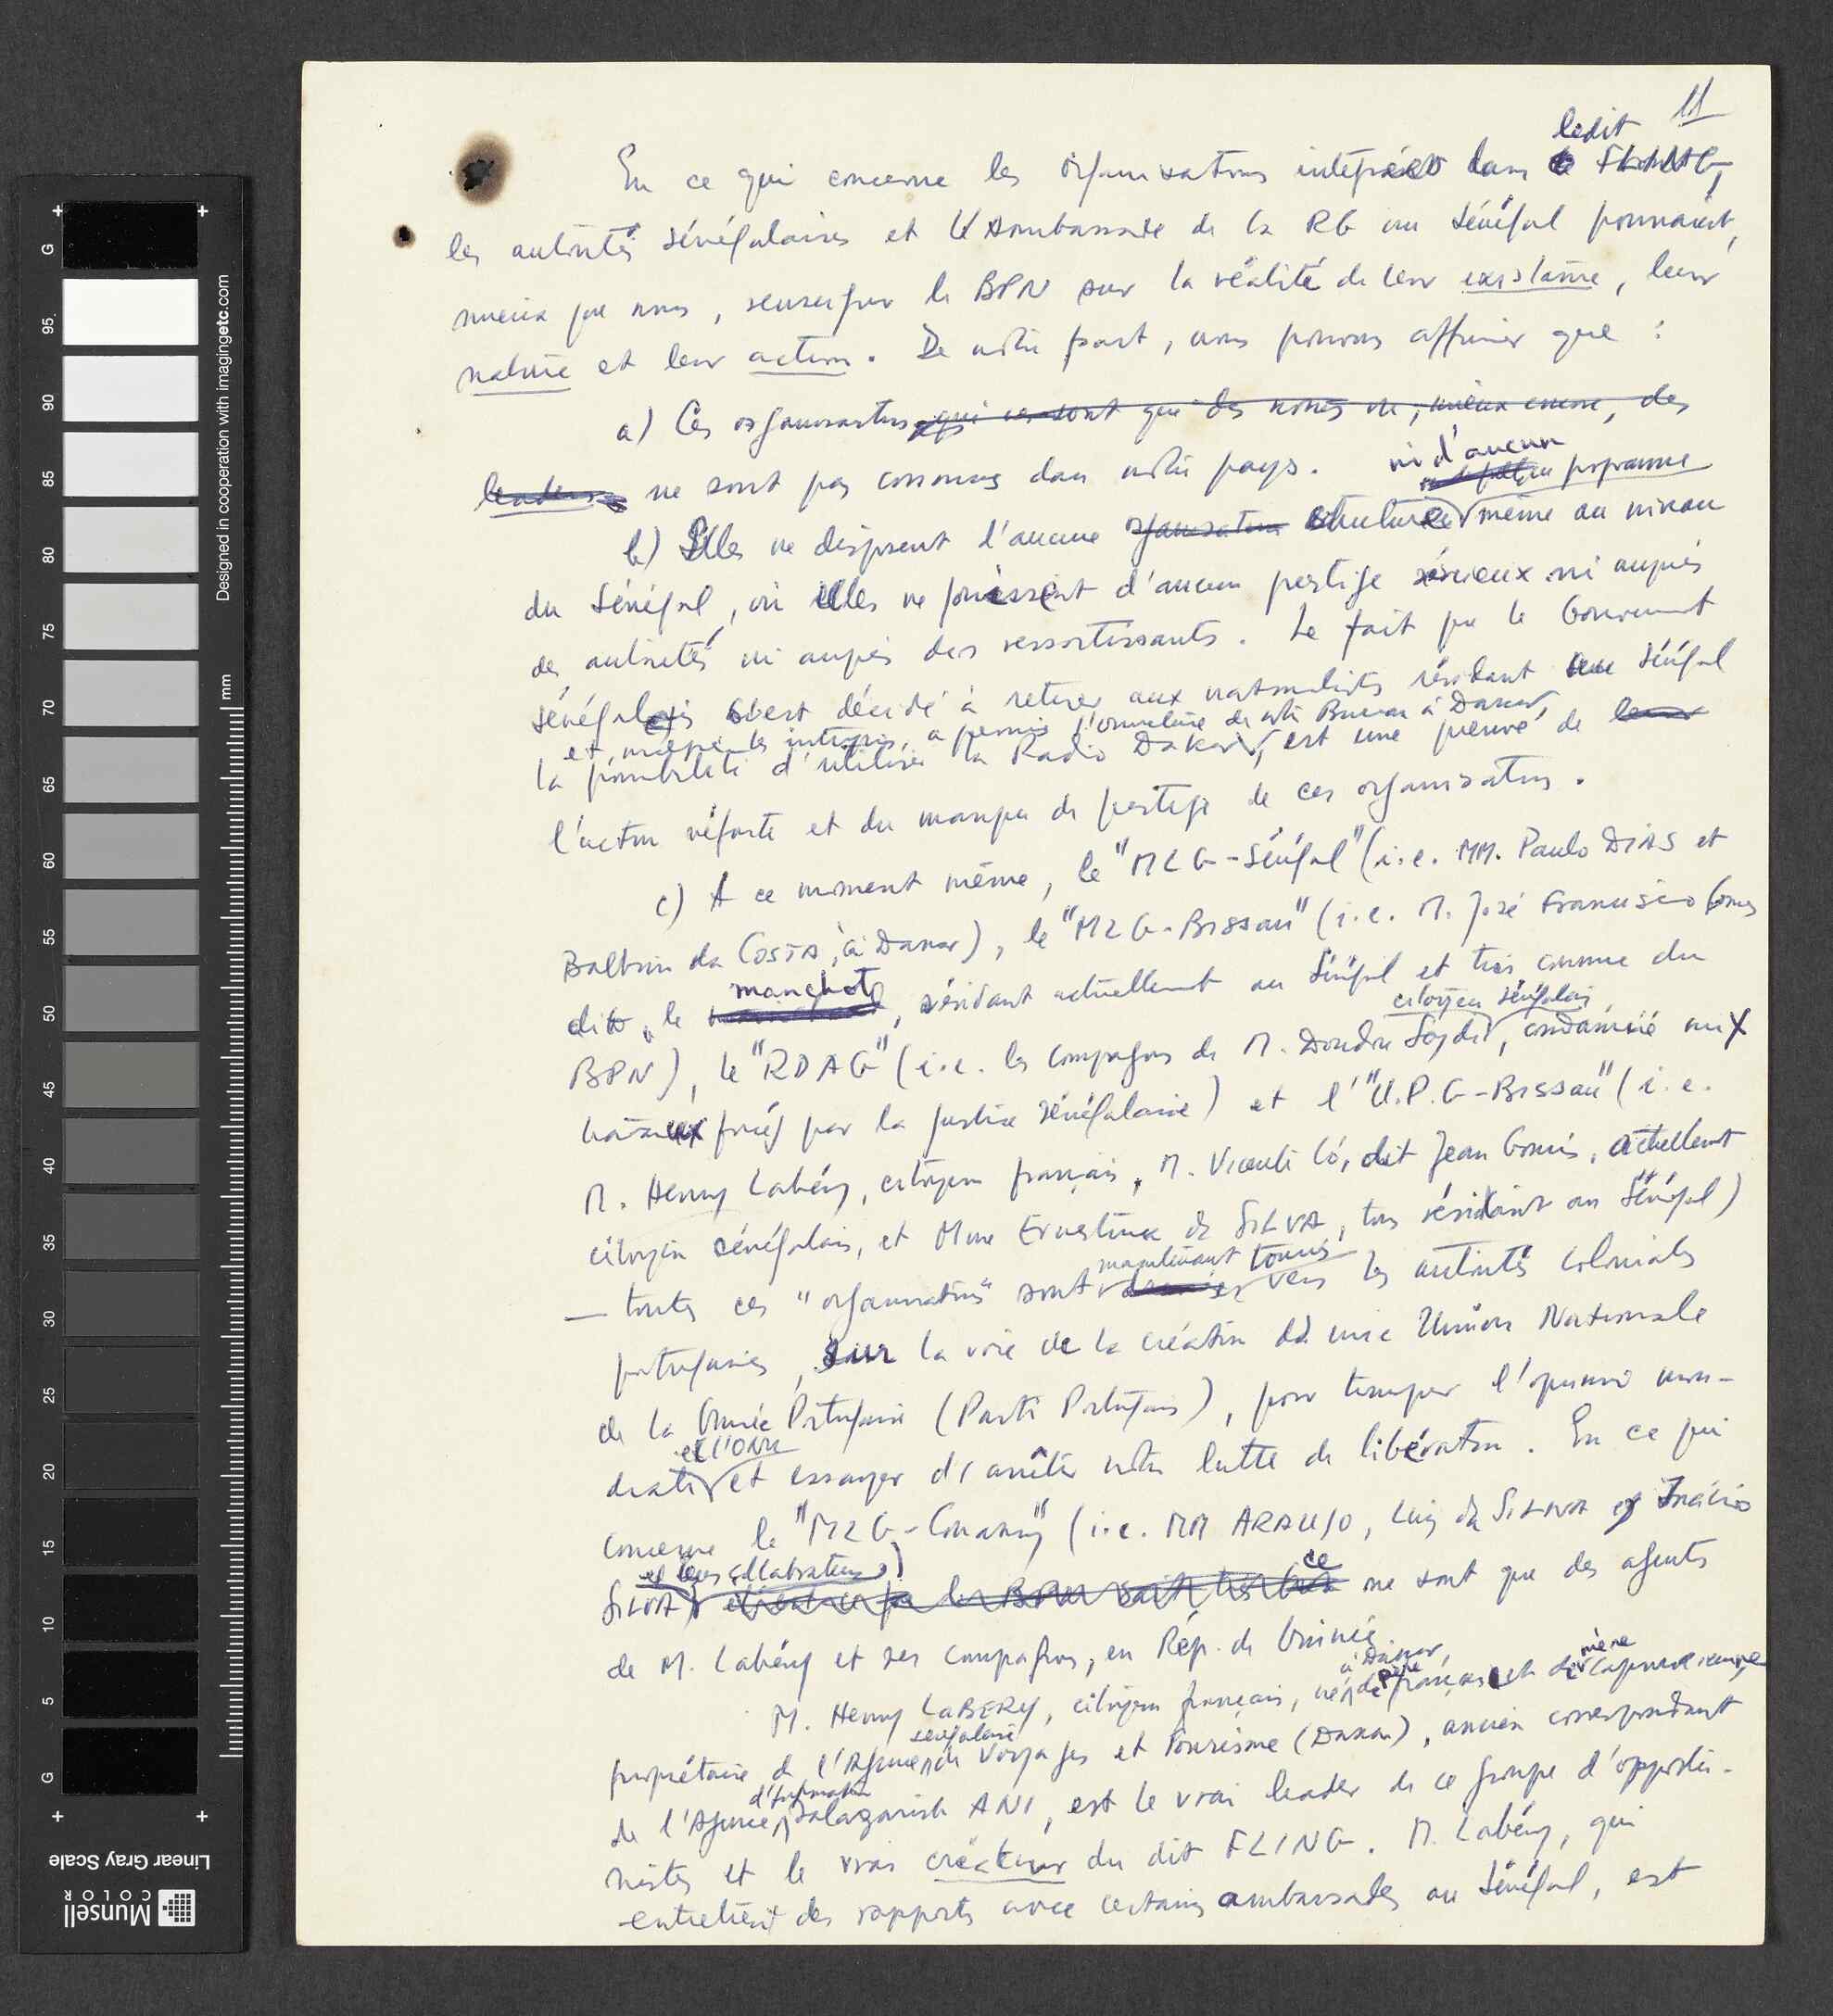 11
En ce qui concerne les organisations intégrées dans ledit FLING,
les autorités sénégalaises et l'Ambassade de la RG au Sénégal pourraient,
mieux que nous, renseigner le BPN sur la réalité de leur existance, leur
nature et leur action. De notre part, nous pouvons affirmer que :
a) Ces organisations qui ne sont que des noms ou, mieux encore, des
leaders ne sont pas connues dans notre pays.
ni d'aucun programme
b) Elles ne disposent d'aucune organisation structure même au niveau
du Sénégal, où elles ne jouissent d'aucun prestige sérieux ni auprès
des autorités ni auprès des ressortissants. Le fait que le Gouvernement
sénégalais s'est décidé à retirer aux nationalistes résidant au Sénégal
et, malgré les intrigues, a permis l'ouverture de notre Bureau à Dakar,
la possibilité d'utiliser la Radio Dakar, est une preuve de leur
l'action néfaste et du manque de prestige de ces organisations.
c) A ce moment même, le "MLG-Sénégal" (i.e. MM. Paulo DIAS et
Balbino da COSTA, à Dakar), le "MLG-Bissau" (i.e. M. José Francisco Gomes
dit, le manchot, résidant actuellement au Sénégal et très connu du
citoyen sénégalais,
BPN), le "RDAG" (i.e. les compagnons de M. Doudou Seydi, condamné aux
travaux forcés par la justice sénégalaise) et l'"U.P.G-Bissau" (i.e.
M. Henry Labéry, citoyen français, M. Vicente Có, dit Jean Gomis, actuellement
citoyen sénégalais, et Mme Ernestina da SILVA, tous résidant au Sénégal)
maintenant tournés
— toutes ces "organisations" sont vers les autorités coloniales
portugaises, sur la voie de la création d'une Union Nationale
de la Guinée Portugaise (Parti Portugais), pour tromper l'opinion mon-
et l'ONU
diale et essayer d'arrêter notre lutte de libération. En ce qui
concerne le "MLG-Conakry" (i.e. MM ARAUJO, Luiz da SILVA et Inácio
et leurs collaborateurs)
SILVA) le BPN sait très bien ce ne sont que des agents
de M. Labéry et ses compagnons, en Rép. de Guinée.
à Dakar père mère
M. Henry LABERY, citoyen français, né de français et de capverdienne,
sénégalaise
propriétaire de l'Agence de Voyages et Tourisme (Dakar), ancien correspondant
d'information
de l'Agence salazariste ANI, est le vrai leader de ce groupe d'opportu-
nistes et le vrai créateur du dit FLING. M. Labéry, qui
entretient des rapports avec certaines ambassades au Sénégal, est
mm
Designed in cooperation with imagingetc.com
G
95
90
85
80
75
70
65
60
55
50
45
40
35
30
25
20
15
10
5
G
Linear Gray Scale
Munsell
COLOR